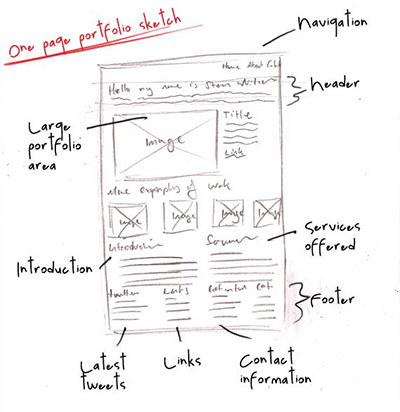 One page portfolio sketch
Navigation
Home About
Hello my name is
header
Large
portfolio
area
Title
Image
Link
More examples of work
Image
Image
Image
Image
Services
offered
Introduction
Introduction
twitter
Links
Footer
Latest
tweets
Links
Contact
information